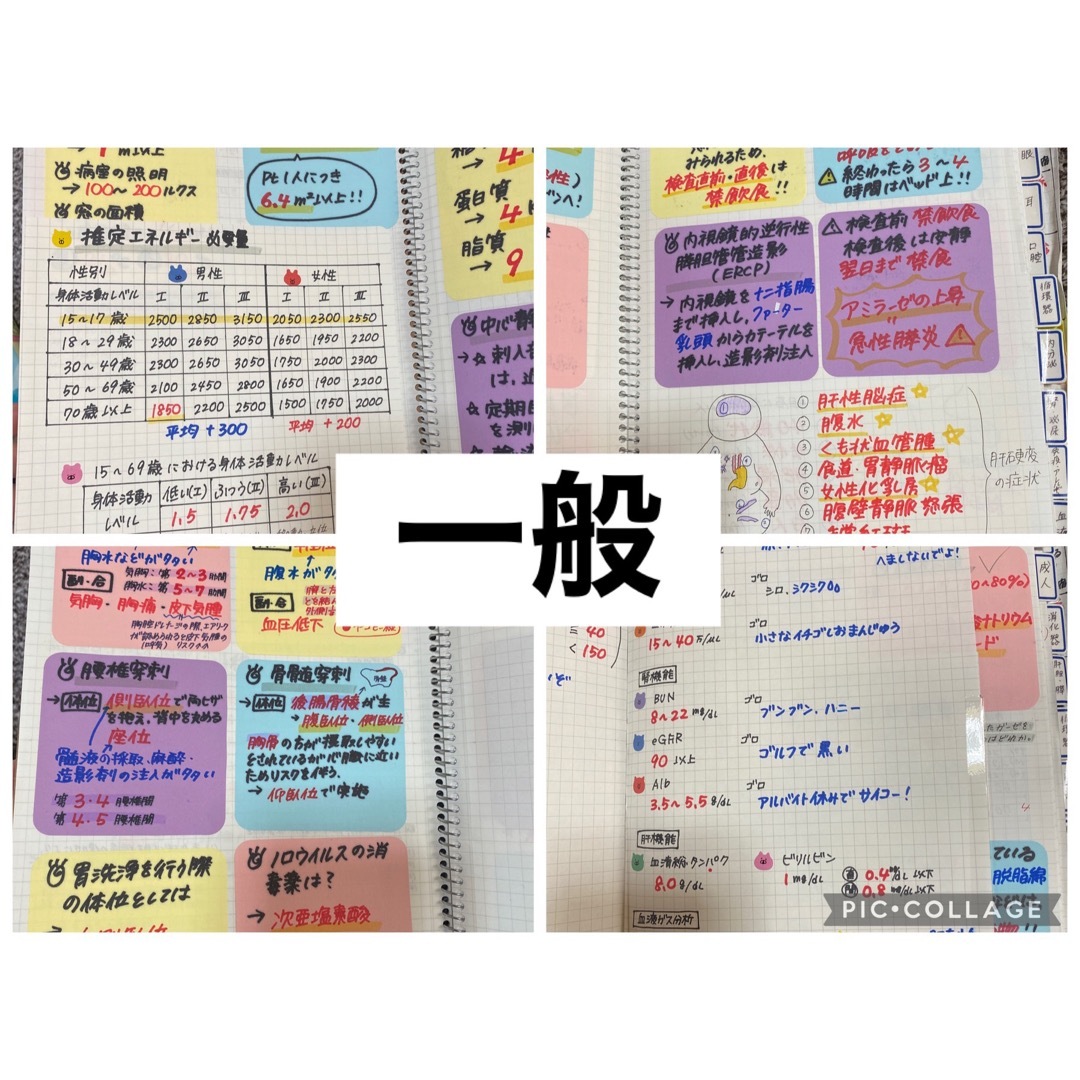 一般
m²以上
病室の照明
→ 100〜200ルクス
窓の面積
Pt1人につき
6.4m²以上!!
推定エネルギー必要量
性別 男性 女性
身体活動レベル Ⅰ Ⅱ Ⅲ Ⅰ Ⅱ Ⅲ
15〜17歳 2500 2850 3150 2050 2300 2550
18〜29歳 2300 2650 3050 1650 1950 2200
30〜49歳 2300 2650 3050 1750 2000 2300
50〜69歳 2100 2450 2800 1650 1900 2200
70歳以上 1850 2200 2500 1500 1750 2000
平均+300 平均+200
15〜69歳における身体活動レベル
身体活動レベル 低い(Ⅰ) ふつう(Ⅱ) 高い(Ⅲ)
1.5 1.75 2.0
蛋白質
→ 4
脂質
→ 9
中心静
定期
みられるため、
検査直前・直後は
禁飲食!!
終わったら3〜4
時間はベッド上!!
内視鏡的逆行性
膵胆管管造影
(ERCP)
→ 内視鏡を十二指腸
まで挿入し、ファーター
乳頭からカテーテルを
挿入し、造影剤注入
検査前 禁飲食
検査後は安静
翌日まで禁食
アミラーゼの上昇
急性膵炎
① 肝性脳症
② 腹水
③ くも状血管腫
④ 食道・胃静脈瘤
⑤ 女性化乳房
⑥ 腹壁静脈怒張
⑦
肝硬変
の症状
眼
耳
口腔
循環器
内分泌
胸水などがタタい
気胸:第2〜3肋間
胸水:第5〜7肋間
副・合
気胸・胸痛・皮下気腫
腹水がタ
副・合
血圧低下
腰椎穿刺
→ 体位 側臥位で両ヒザ
を抱え、背中を丸める
座位
髄液の採取、麻酔・
造影剤の注入がタタい
第3・4腰椎間
第4・5腰椎間
骨髄穿刺
→ 体位 後腸骨稜が主
→ 腹臥位・側臥位
胸骨の方が採取しやすい
とされているが心臓に近い
ためリスクを伴う、
→ 仰臥位で実施
胃洗浄を行う際
の体位としては
ノロウイルスの消
毒薬は?
→ 次亜塩素酸
へましないでよ!
ゴロ
シロ、シクシク00
40
<150
15〜40万/μL
ゴロ
小さなイチゴしおまんじゅう
腎機能
BUN
8〜22mg/dL
ゴロ
ブンブン、ハニー
eGFR
90以上
ゴロ
ゴルフで黒い
Alb
3.5〜5.5g/dL
ゴロ
アルバイト休みでサイコー!
肝機能
血清総タンパク
8.0g/dL
ビリルビン
1mg/dL
直 0.4mg/dL以下
間 0.8mg/dL以下
血液ガス分析
0〜80%)
ナトリウム
ード
成人
消化器
ている
脱脂綿
PIC•COLLAGE